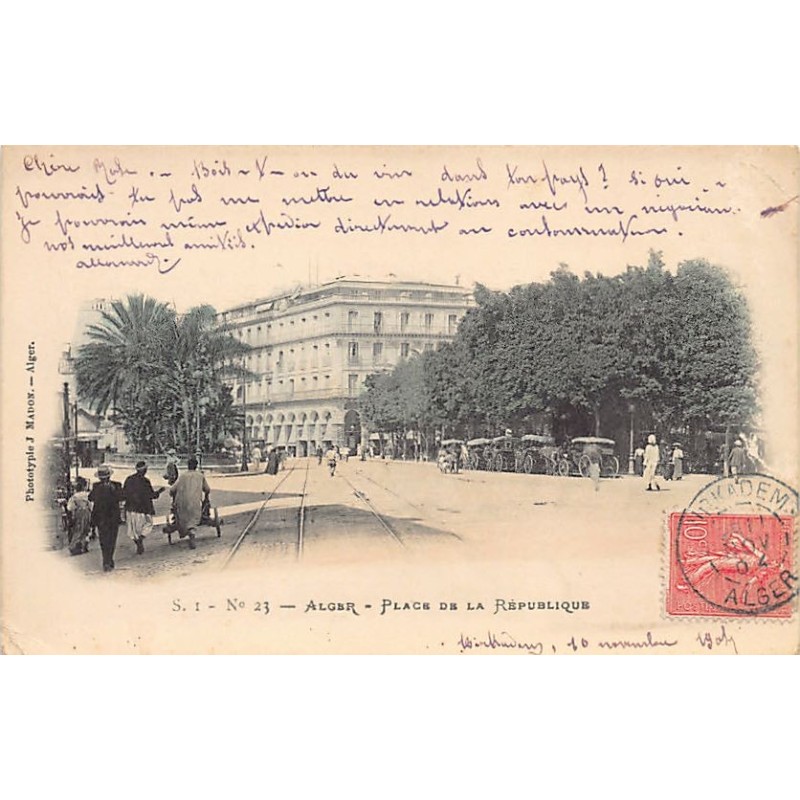 Chère
Bois-t-on du vin dans ton pays? si oui
pourrais tu pas me mettre en relations avec un négocian.
Je pourrais même expédier directement au consommateur.
nos meilleures amitiés.
Phototypie J MADON. — Alger.
S. 1 - No 23 — ALGER - PLACE DE LA RÉPUBLIQUE
10
ALGER
10 novembre 1904